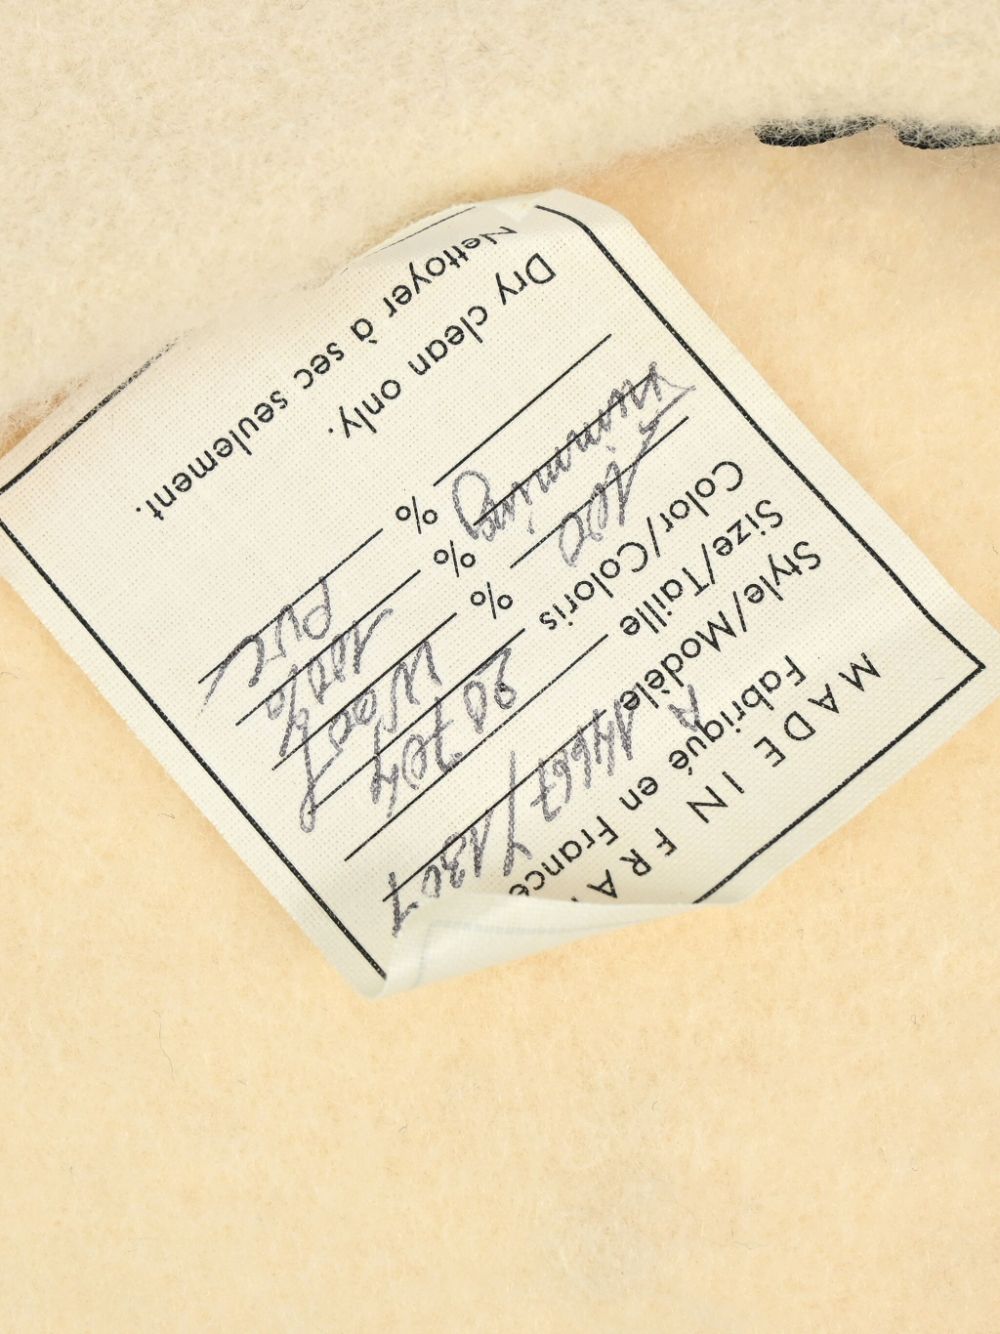 MADE IN FRA
Fabriqué en France
Style/Modèle A 14667/1307
Size/Taille
Color/Coloris 20704
100 % Wool
Trimming % 100%
% PVC
Dry clean only.
Nettoyer à sec seulement.